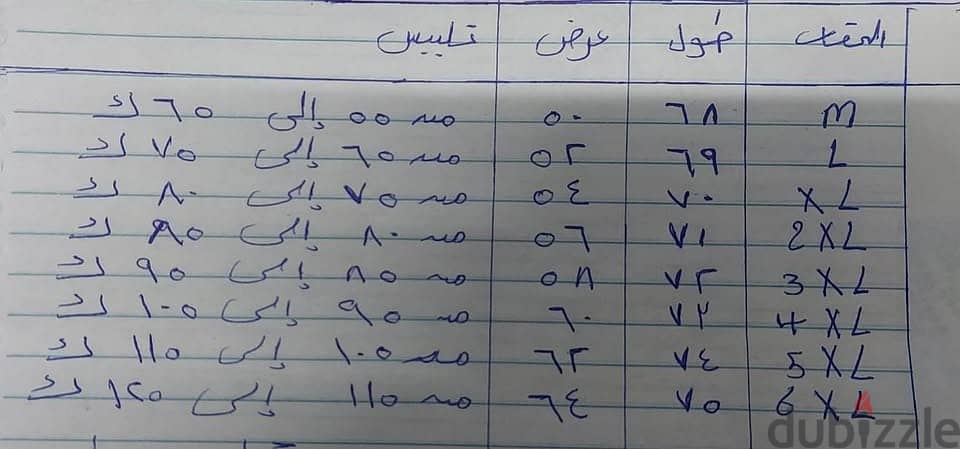 المقاس طول عرض تلبيس
M ٦٨ ٥٠ من ٥٥ إلى ٦٥ ك
L ٦٩ ٥٢ من ٦٥ إلى ٧٥ ك
XL ٧٠ ٥٤ من ٧٥ إلى ٨٠ ك
2XL ٧١ ٥٦ من ٨٠ إلى ٨٥ ك
3XL ٧٢ ٥٨ من ٨٥ إلى ٩٥ ك
4XL ٧٣ ٦٠ من ٩٥ إلى ١٠٥ ك
5XL ٧٤ ٦٢ من ١٠٥ إلى ١١٥ ك
6XL ٧٥ ٦٤ من ١١٥ إلى ١٢٥ ك
dubizzle